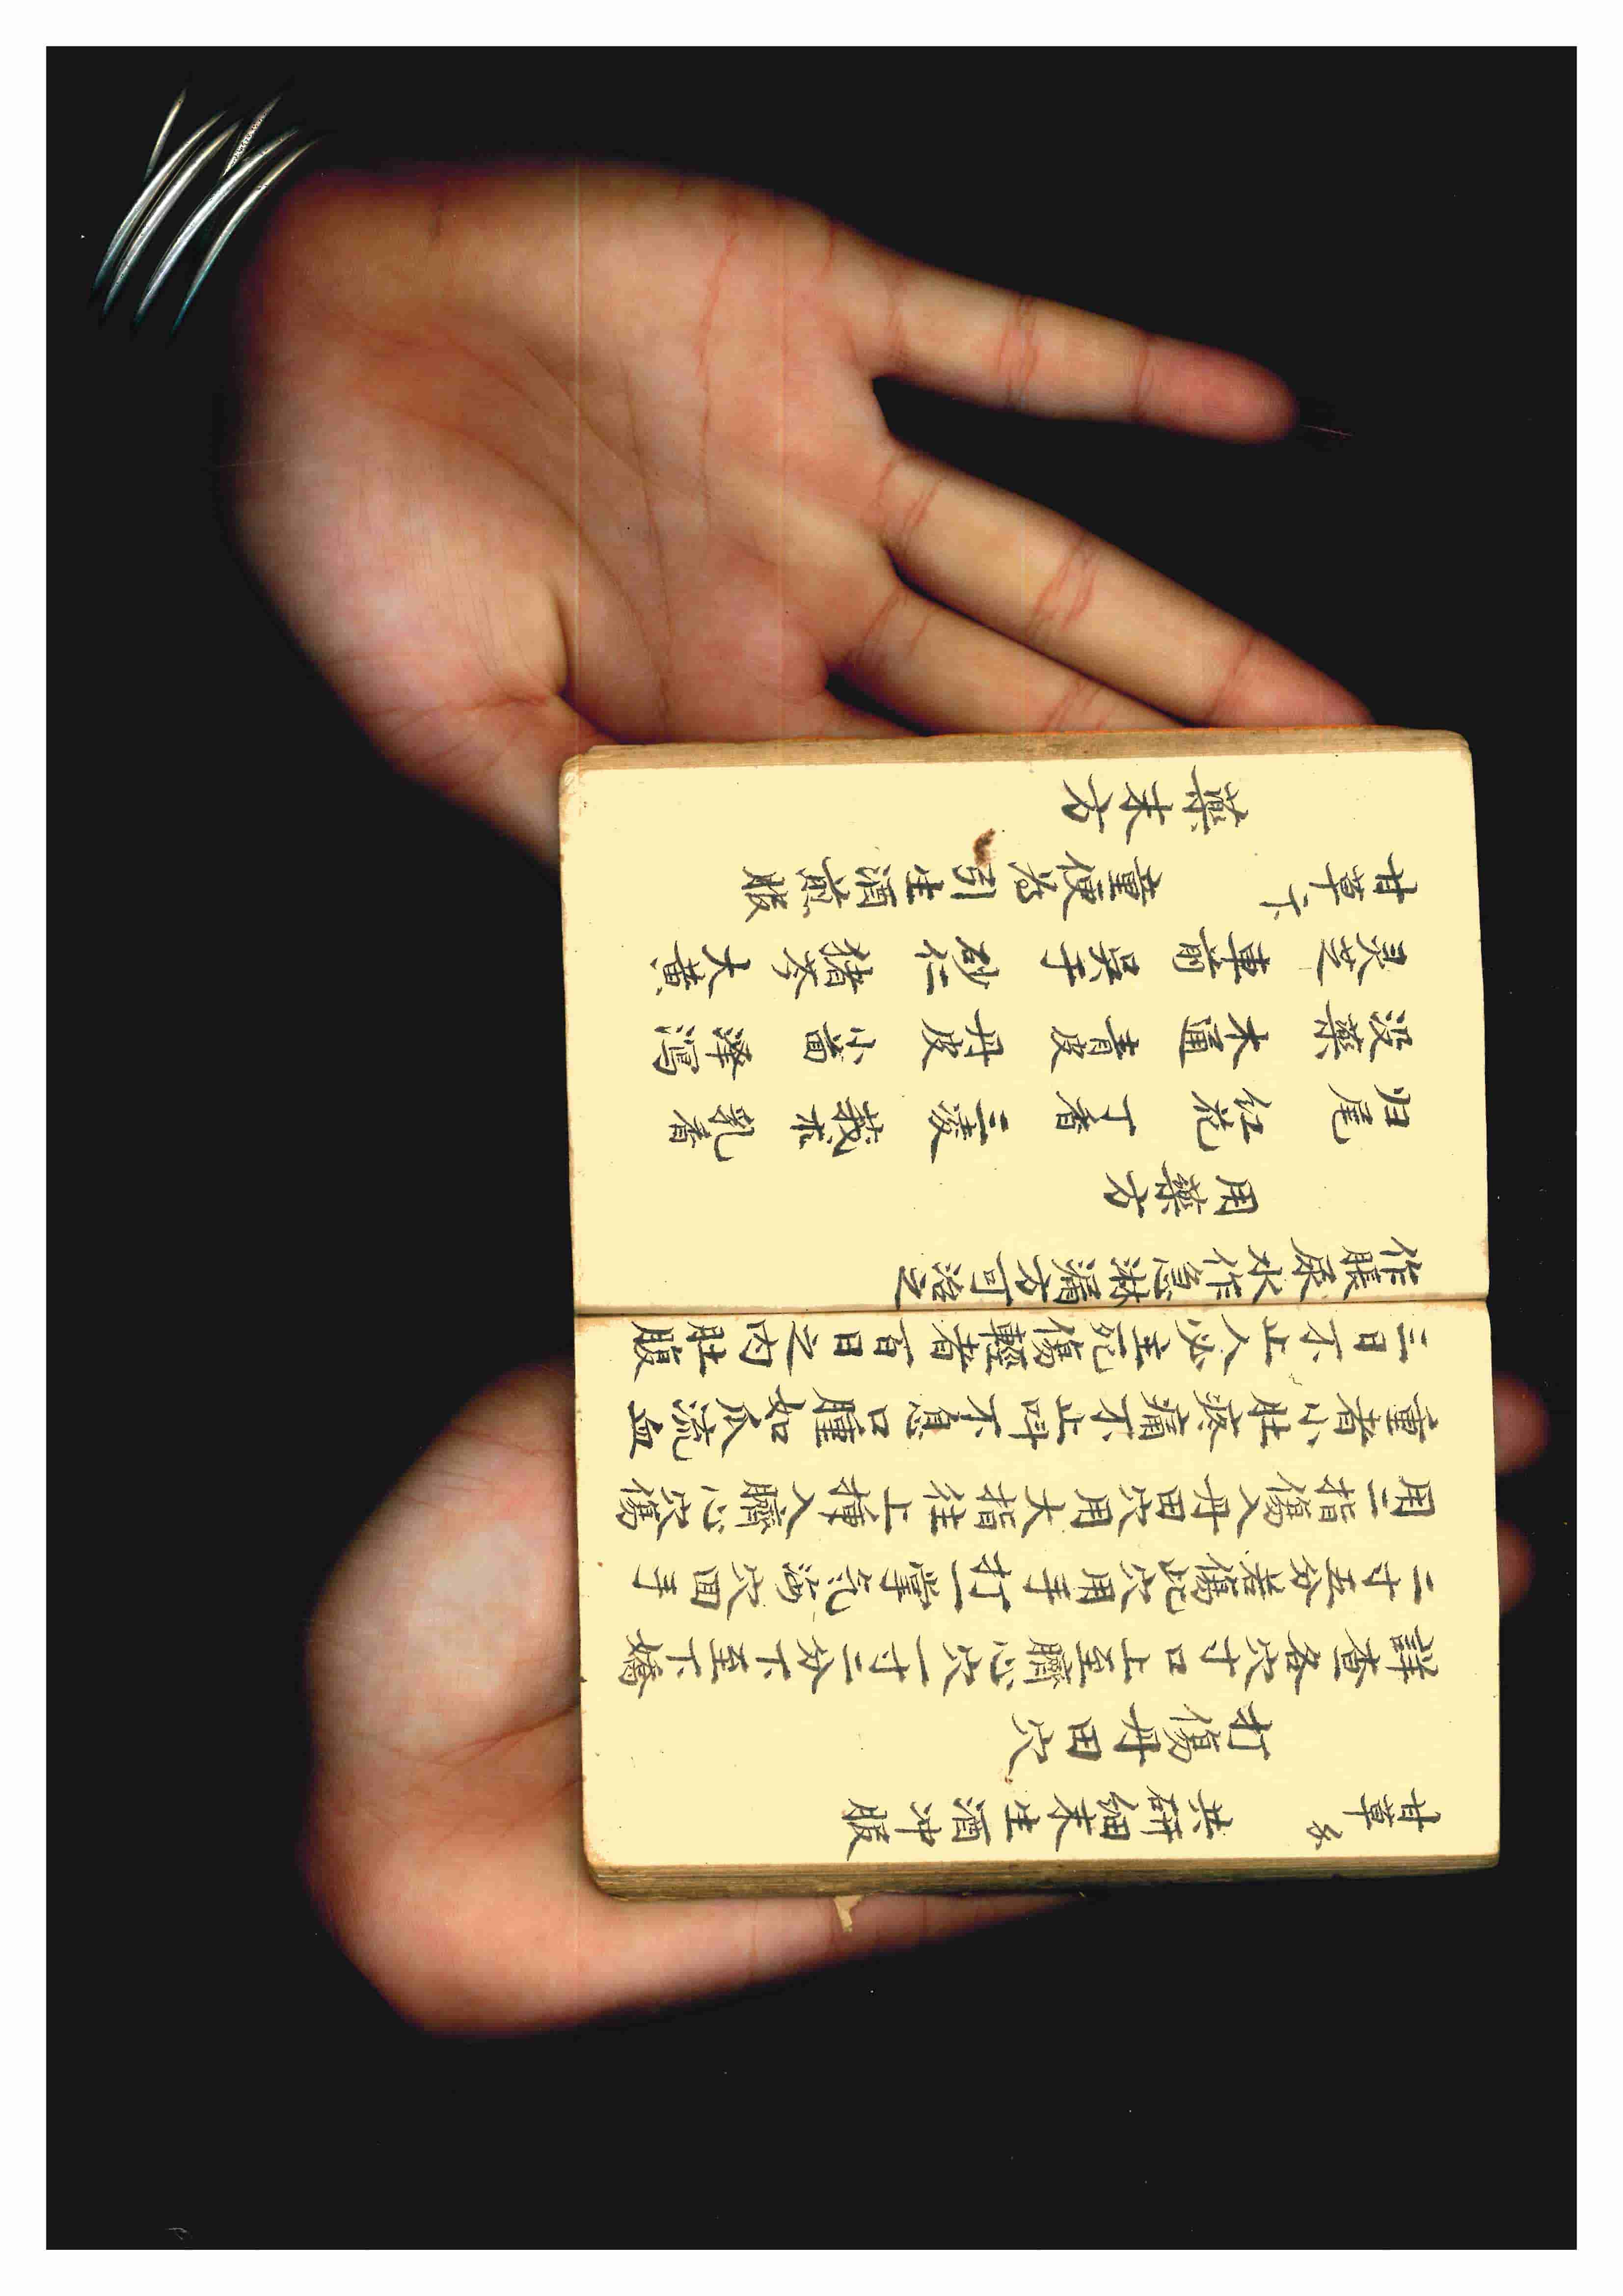 甘草 共研細末生酒冲服
打傷丹田穴
詳查各穴寸口上至臍心穴一寸三分下至下嬌
二寸五分若傷此穴用手打一掌气海穴回手
用一指傷入丹田穴用大指往上挿入臍心穴傷
重者小肚疼痛不止叫不息口腫如瓜流血
三日不止人必主死傷輕者百日之内肚腹
作脹尿水作急淋漏方可治之
用藥方
归尾 红花 丁香 三凌 莪术 乳香
没藥 木通 青皮 丹皮 小茴 澤瀉
灵芝 車前 吳于 砂仁 猪苓 大黄
甘草 童便为引生酒煎服
藥末方